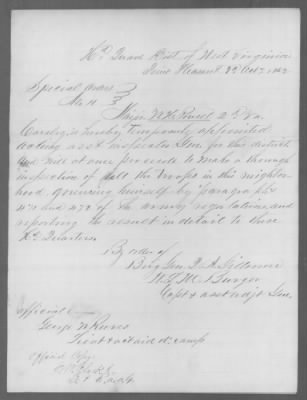 Hd Quars Dist of West Virginia
Point Pleasant Oct 1862
Special orders
No 11
Major W. H. Powell 2d Va
Cavalry, is hereby temporarily appointed
acting asst Inspector Gen. for this district
and will at once proceed to make a thorough
inspection of all the troops in this neighbor
hood, governing himself by Paragraphs
471 and 472 of the army regulations, and
reporting the result in detail to these
Hd Quarters
By order of
Brig Gen. Q. A. Gillmore
W. L. M. Burger
Capt & asst adjt Gen.
Official
George W
Lieut & act aid de camp
Official Copy